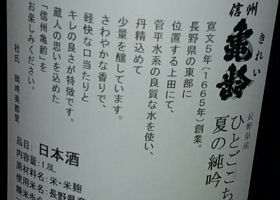 信州
亀齢
きれい
長野県産
ひとごこち
夏の純吟
寛文5年(1665年)創業。
長野県の東部に
位置する上田にて、
菅平水系の良質な水を使い、
丹精込めて
少量を醸しています。
さわやかな香りで、
軽快な口当たりと
キレの良さが特徴です。
蔵人の思いを込めた
「信州亀齢」を
お楽しみください。
杜氏 岡崎美都里
品目:日本酒
内容量:1.8L
原材料名:米・米麹
使用米:長野県産
精米歩合